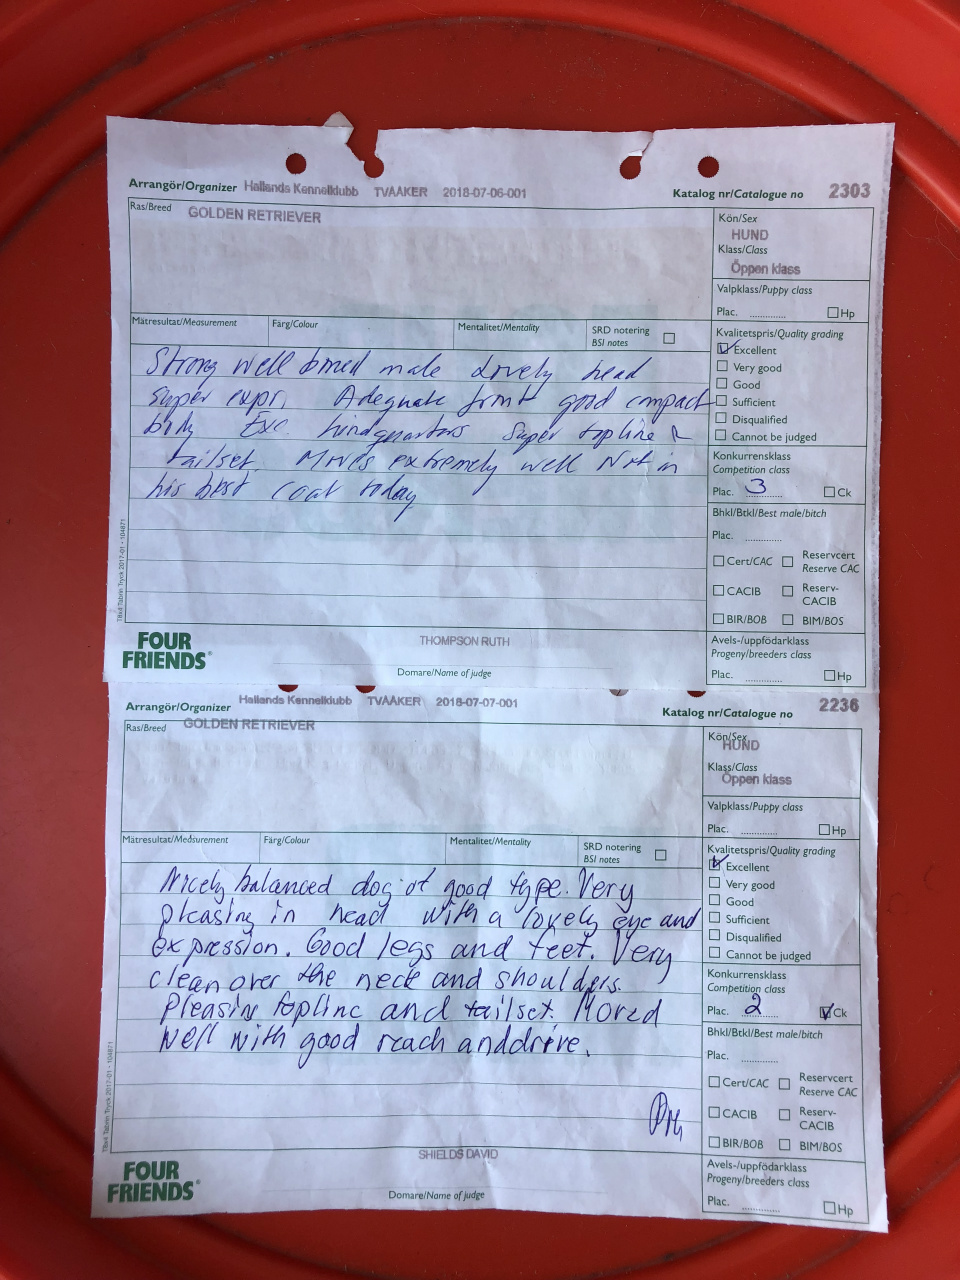 Arrangör/Organizer Hallands Kennelklubb TVÅÅKER 2018-07-06-001 Katalog nr/Catalogue no 2303
Ras/Breed GOLDEN RETRIEVER
Kön/Sex
HUND
Klass/Class
Öppen klass
Valpklass/Puppy class
Plac. ............ Hp
Mätresultat/Measurement Färg/Colour Mentalitet/Mentality SRD notering
BSI notes
Kvalitetspris/Quality grading
Excellent
Very good
Good
Sufficient
Disqualified
Cannot be judged
Strong well boned male Lovely head
super expr. Adequate front good compact
body Exc hindquarters Super topline &
tailset. Moves extremely well Not in
his best coat today
Konkurrensklass
Competition class
Plac. 3 Ck
Bhkl/Btkl/Best male/bitch
Plac. ............
Cert/CAC Reservcert
Reserve CAC
CACIB Reserv-
CACIB
BIR/BOB BIM/BOS
Avels-/uppfödarklass
Progeny/breeders class
Plac. ............ Hp
Tillväl Tabrin Tryck 2017-01 - 104871
FOUR
FRIENDS®
THOMPSON RUTH
Domare/Name of judge
Arrangör/Organizer Hallands Kennelklubb TVÅÅKER 2018-07-07-001 Katalog nr/Catalogue no 2236
Ras/Breed GOLDEN RETRIEVER
Kön/Sex
HUND
Klass/Class
Öppen klass
Valpklass/Puppy class
Plac. ............ Hp
Mätresultat/Measurement Färg/Colour Mentalitet/Mentality SRD notering
BSI notes
Kvalitetspris/Quality grading
Excellent
Very good
Good
Sufficient
Disqualified
Cannot be judged
Nicely balanced dog of good type. Very
pleasing in head with a lovely eye and
expression. Good legs and feet. Very
clean over the neck and shoulders.
Pleasing topline and tailset. Moved
well with good reach and drive.
Konkurrensklass
Competition class
Plac. 2 Ck
Bhkl/Btkl/Best male/bitch
Plac. ............
Cert/CAC Reservcert
Reserve CAC
CACIB Reserv-
CACIB
BIR/BOB BIM/BOS
Avels-/uppfödarklass
Progeny/breeders class
Plac. ............ Hp
FOUR
FRIENDS®
SHIELDS DAVID
Domare/Name of judge